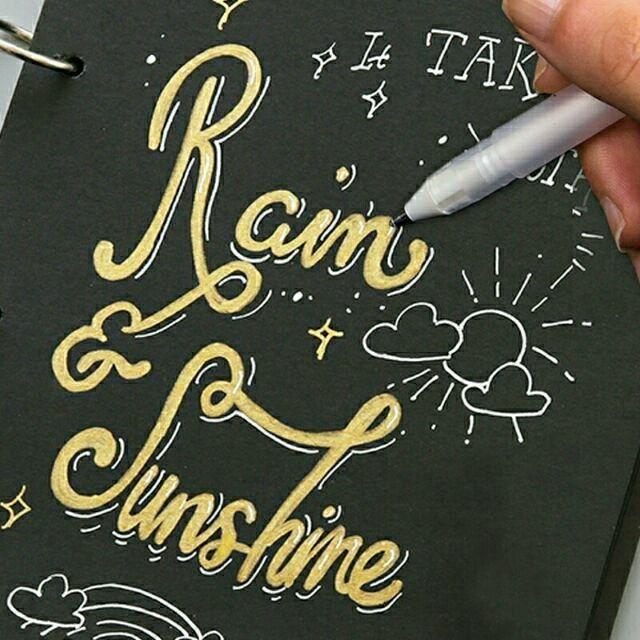 It TAK
Rain
&
Sunshine